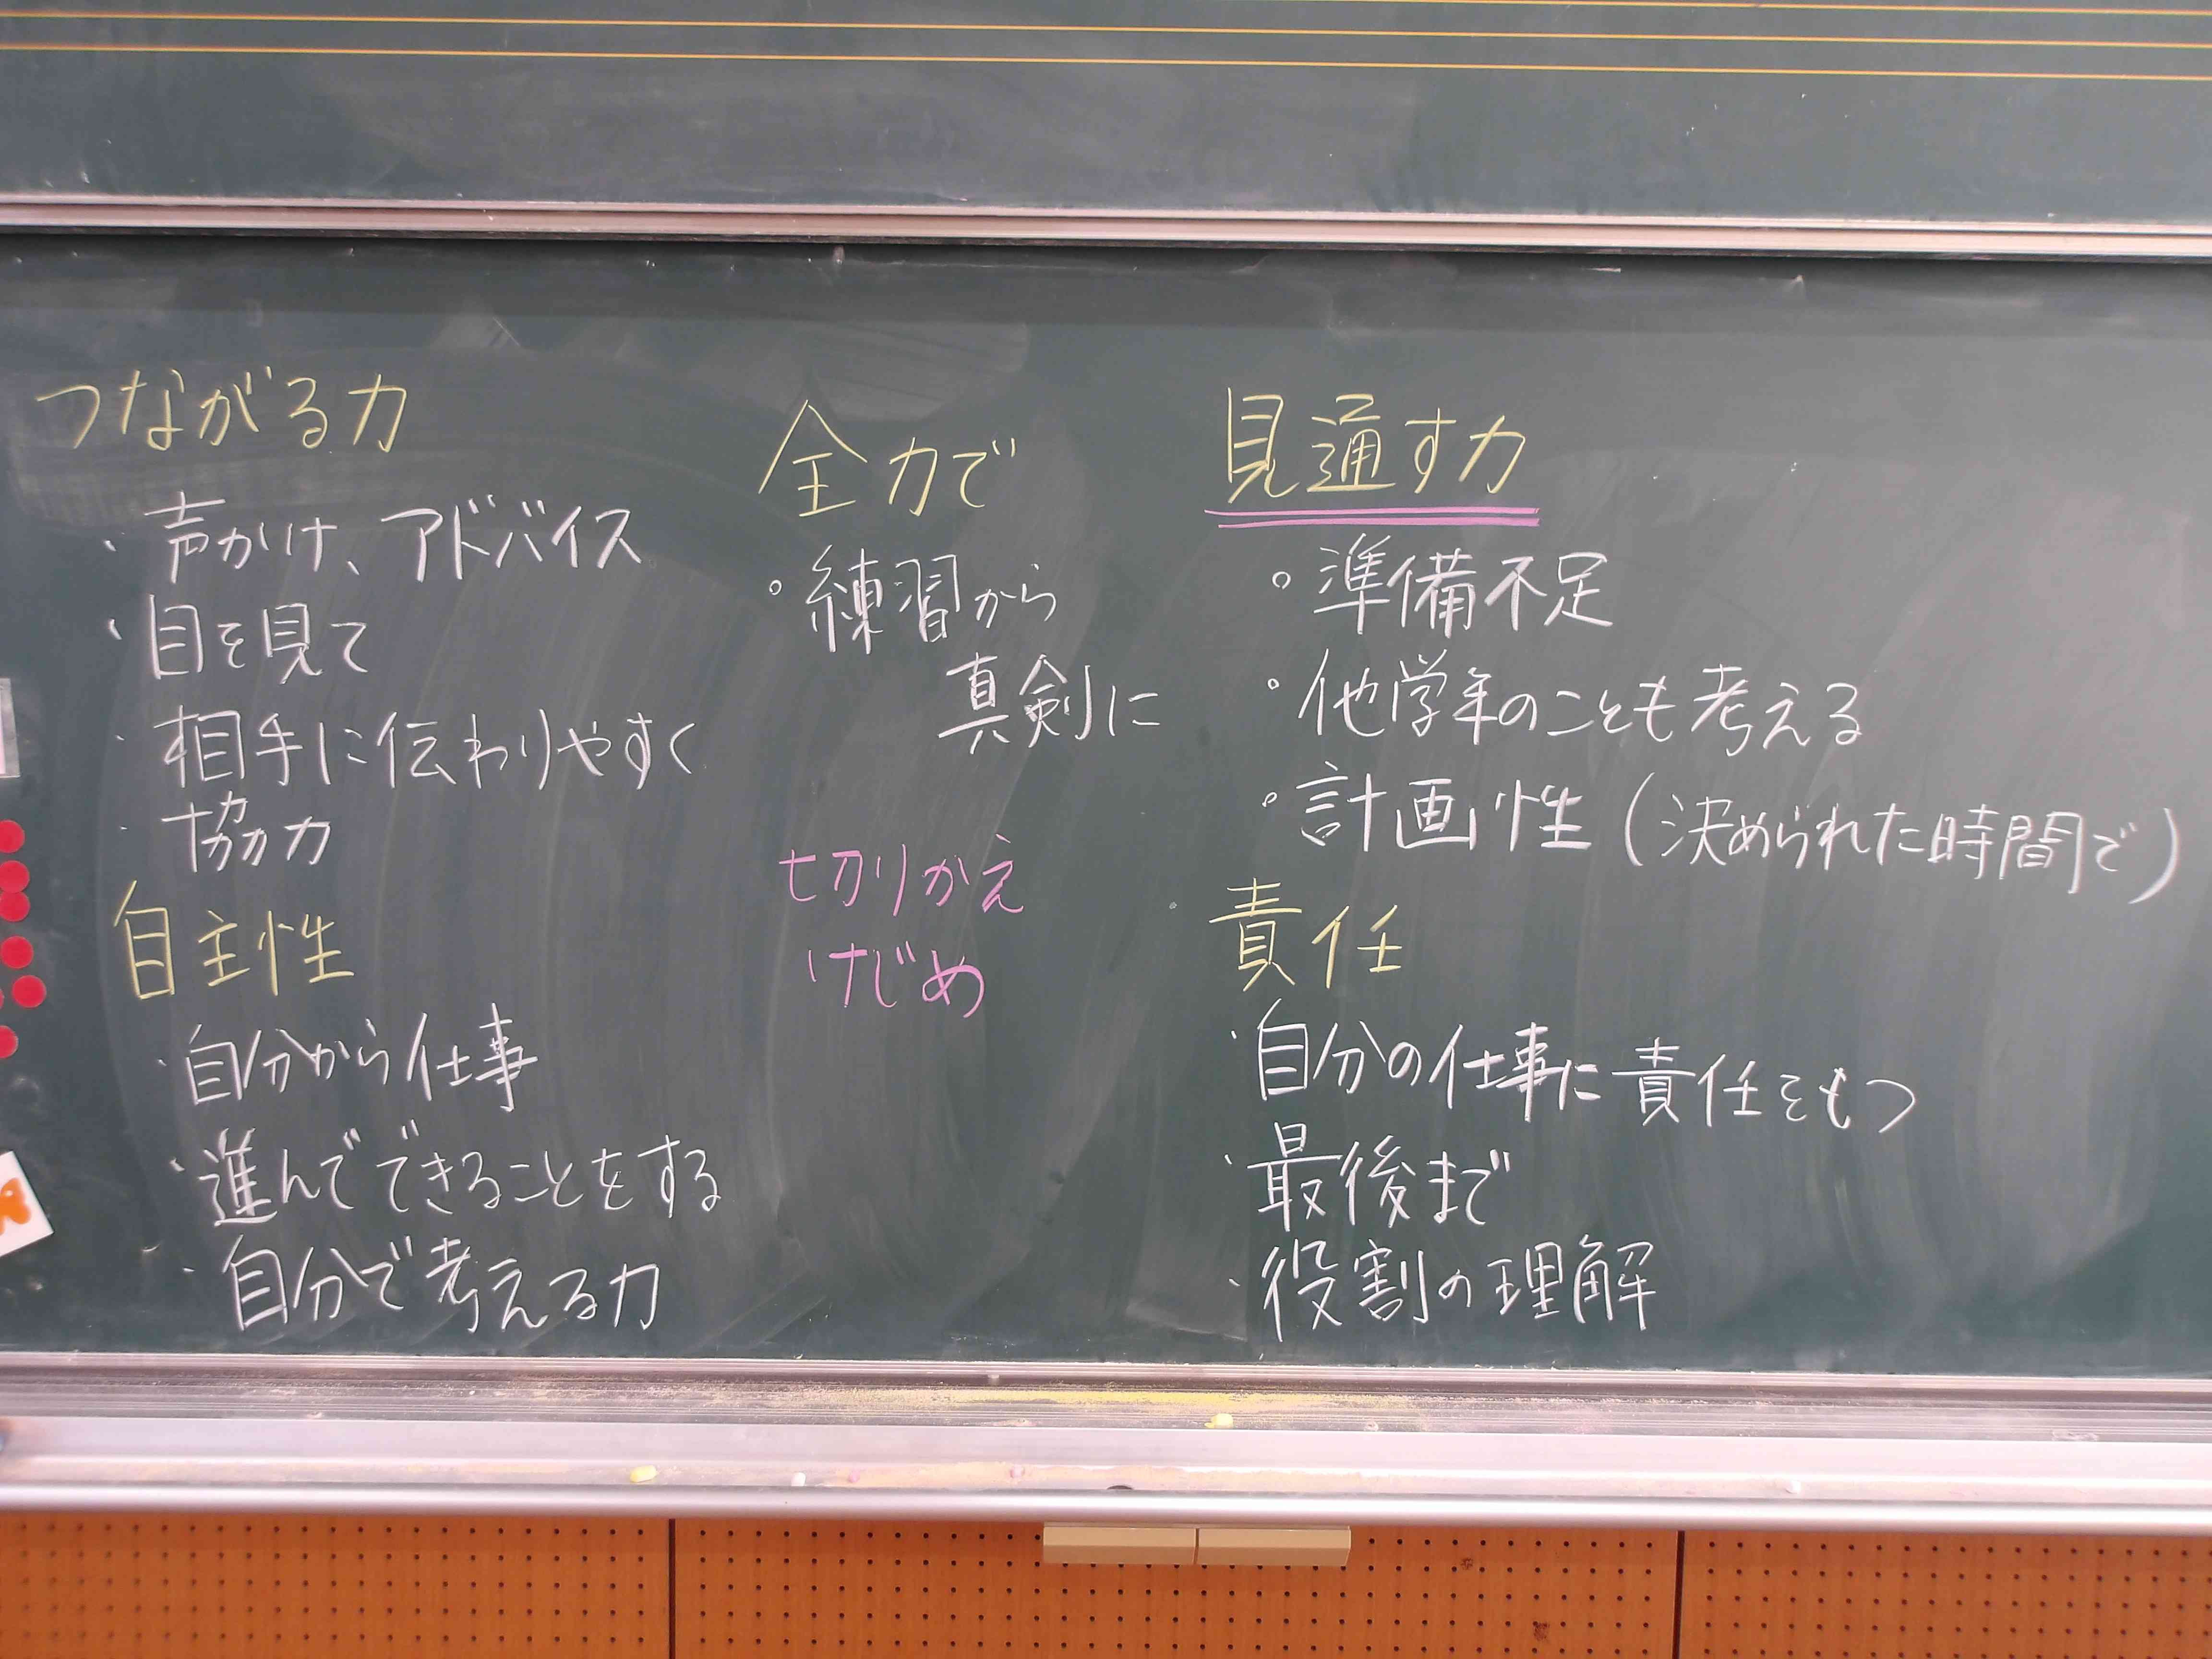 つながる力
・声かけ、アドバイス
・目を見て
・相手に伝わりやすく
・協力
自主性
・自分から仕事
・進んでできることをする
・自分で考える力
全力で
○練習から
真剣に
切りかえ
けじめ
見通す力
○準備不足
○他学年のことも考える
○計画性(決められた時間で)
責任
・自分の仕事に責任をもつ
・最後まで
・役割の理解